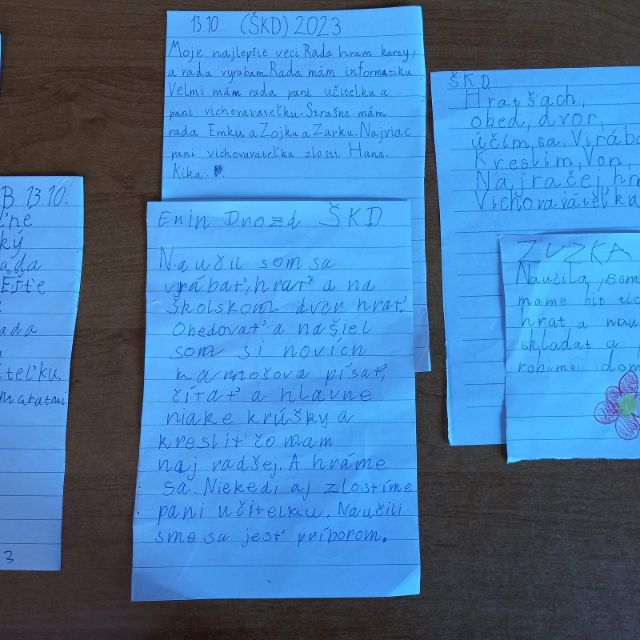 13.10 (ŠKD) 2023
Moje najlepšie veci Rada hram karty,
a rada vyrabam. Rada mám informatiku.
Velmi mám rada pani učitelku a
pani vichovavateľku. Strašne mám
rada Emku a Zojku a Zarku. Najviac
pani vichovavateľku zlostí Hana.
Kika.
B 13.10.
ký
ada
Ešte
ada
iteľku
3
Enin Drozd ŠKD
Naučil som sa
vyrábať, hrať a na
školskom dvor hrať.
Obedovať a našiel
som si novích
kamošova písať,
čítať a hlavne
niake krúšky a
kresliť čo mam
naj radšej. A hráme
sa. Niekedi aj zlostíme
pani učitelku. Naučili
sme sa jesť príborom.
ŠKD
Hrať šach,
obed, dvor,
účim, sa, Virába
Kreslim, Von,
Najračej hr
Vichovávateľku
ZUZKA
Naučila, som
mame biť tic
hrať a nau
skladať a
robíme dom